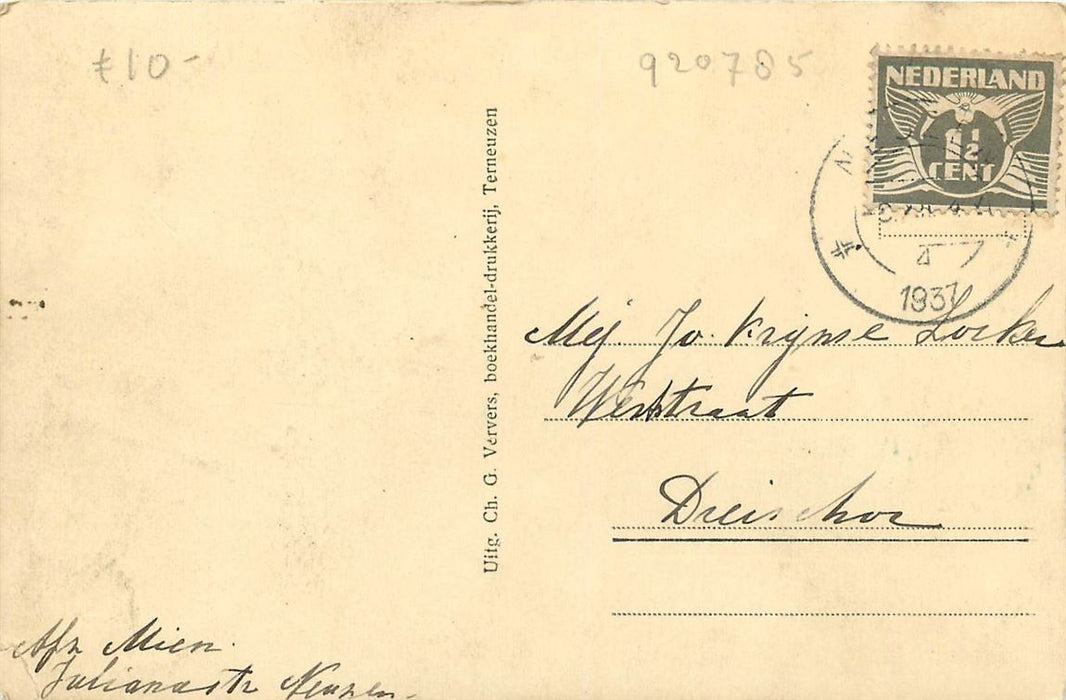 €10-
920785
NEDERLAND
1½
CENT
4
1937
Uitg. Ch. G. Ververs, boekhandel-drukkerij, Terneuzen
Mej. Jo. Krijnse Locker
Weststraat
Dreischor
Afz Mien.
Julianastr Neuzen.